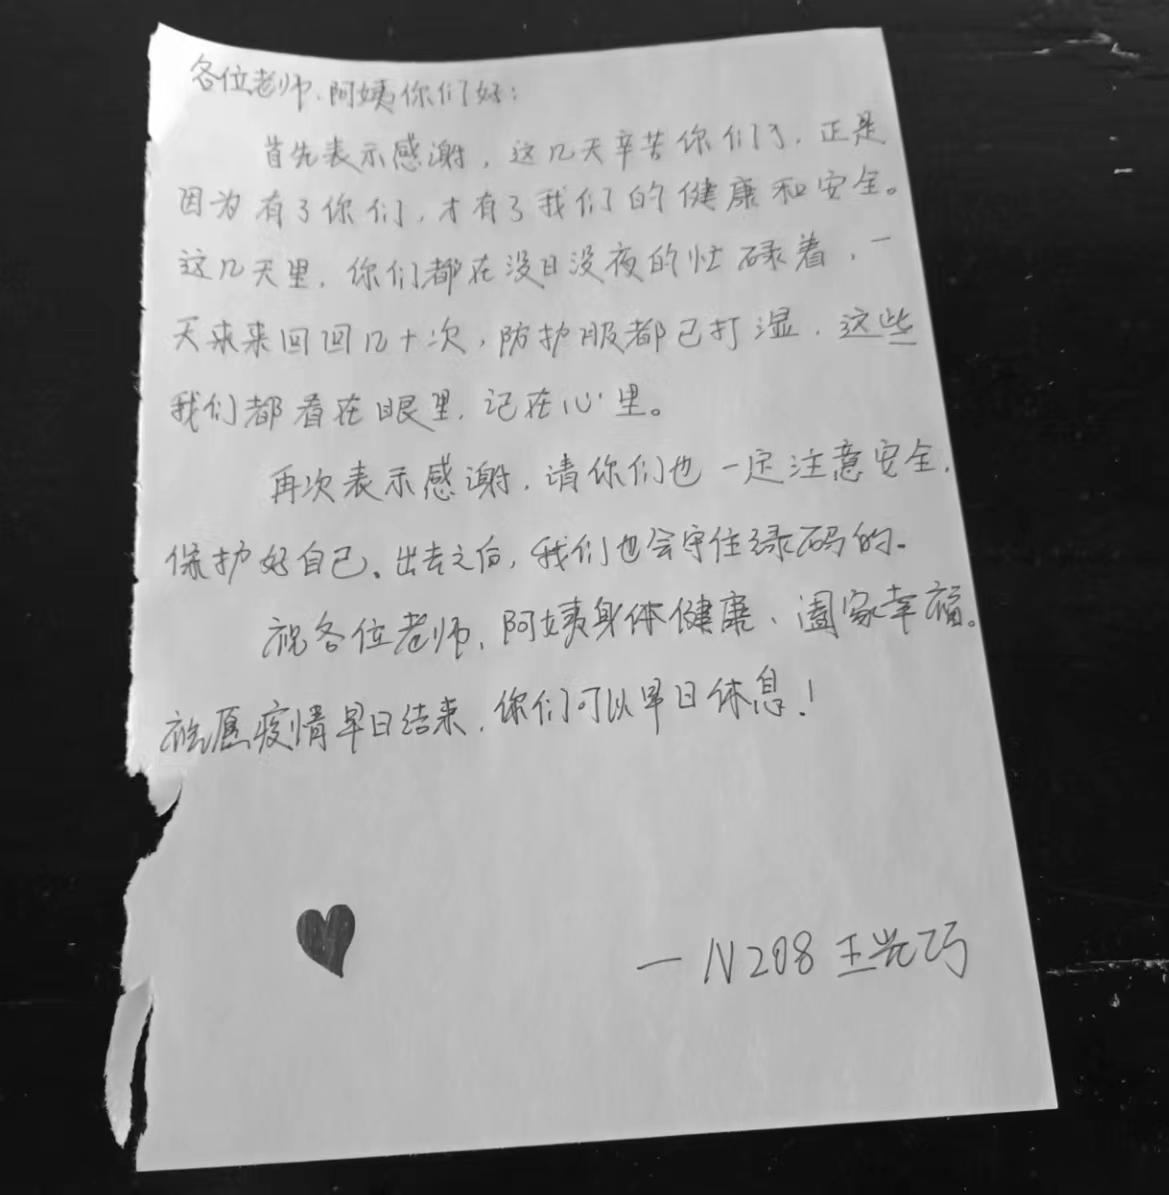 各位老师、阿姨你们好：
首先表示感谢，这几天辛苦你们了，正是
因为有了你们，才有了我们的健康和安全。
这几天里，你们都在没日没夜的忙碌着，一
天来来回回几十次，防护服都已打湿，这些
我们都看在眼里，记在心里。
再次表示感谢，请你们也一定注意安全，
保护好自己。出去之后，我们也会守住绿码的。
祝各位老师、阿姨身体健康、阖家幸福。
祝愿疫情早日结束，你们可以早日休息！
—N208 王